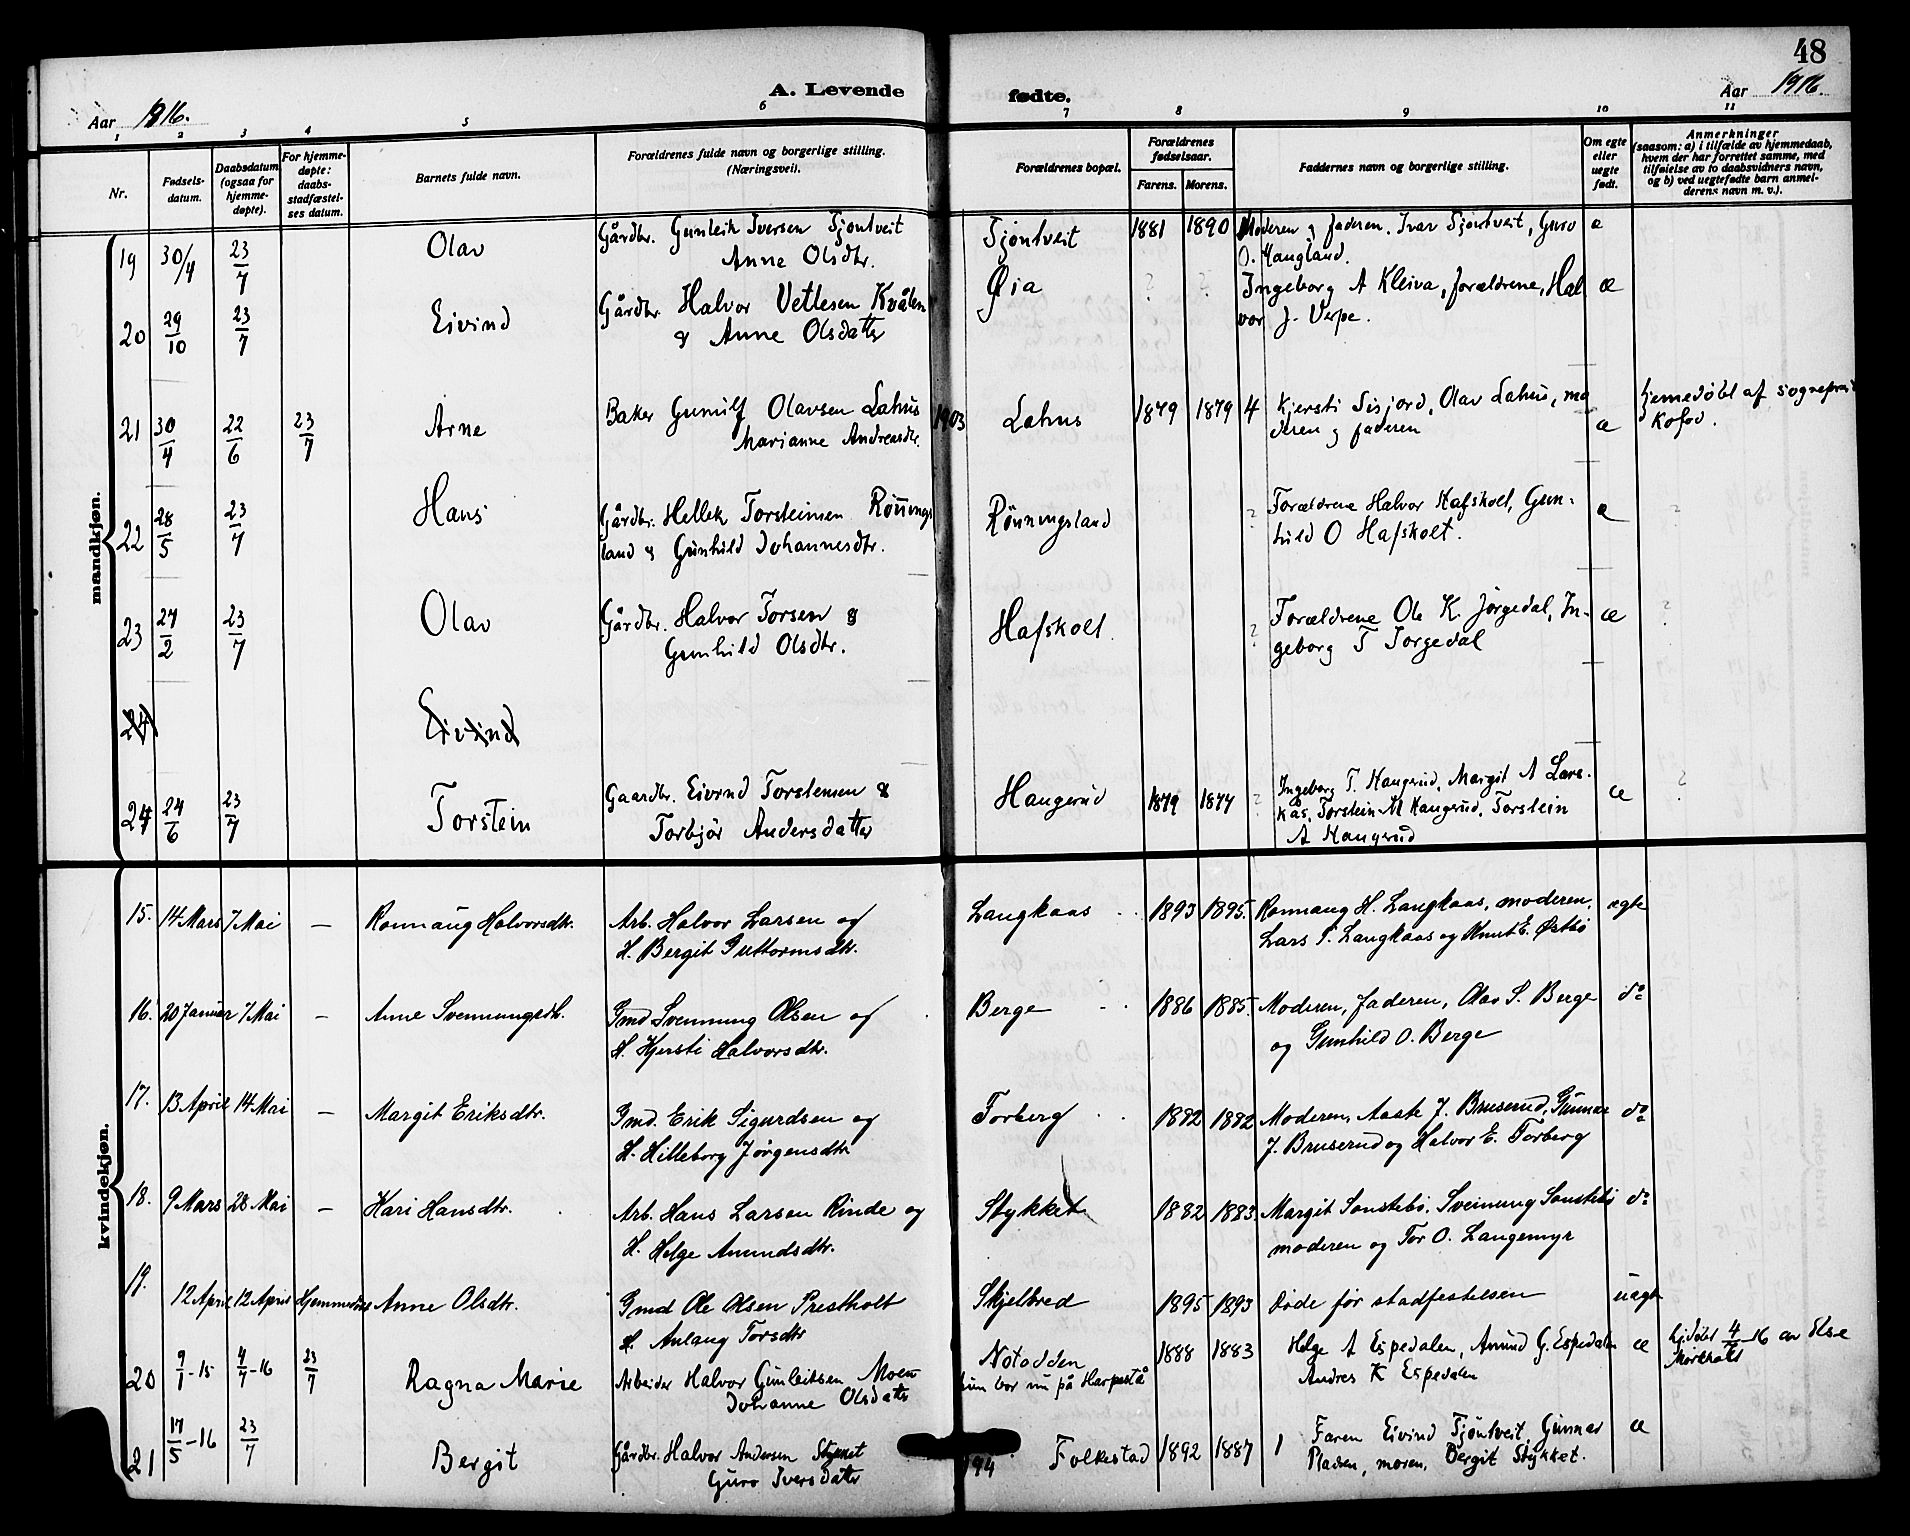 48
A. Levende
fødte.
Aar 1916.
Aar 1916.
1 2 3 4 5 6 7 8 9 10 11
Nr.
Fødsels-
datum.
Daabsdatum
(ogsaa for
hjemme-
døpte).
For hjemme-
døpte:
daabs-
stadfæstel-
ses datum.
Barnets fulde navn.
Forældrenes fulde navn og borgerlige stilling.
(Næringsvei).
Forældrenes bopæl.
Forældrenes
fødselsaar.
Farens. Morens.
Faddernes navn og borgerlige stilling.
Om egte
eller
uegte
født.
Anmerkninger
(saasom: a) i tilfælde av hjemmedaab,
hvem der har forrettet samme, med
tilføielse av to daabsvidners navn,
og b) ved uegtefødte barn anmel-
derens navn m. v.).
mandkjøn.
19 30/4 23/7 Olav Gårdbr. Gunleik Iversen Tjøntveit Tjøntveit 1881 1890 Moderen og faderen. Ivar Tjøntveit, Guro æ
Anne Olsdtr. O. Haugland.
20 29/10 23/7 Eivind Gårdbr. Halvor Vetlesen Kvålen Øia ? ? Ingeborg A Kleiva, forældrene, Hal æ
& Anne Olsdatter vor J. Verpe.
21 30/4 22/6 23/7 Arne Baker Gunulf Olavsen Lahus 1903 Lahus 1879 1879 4 Kjersti Sisjord, Olav Lahus, mo æ hjemedöbt af sogneprest
Marianne Andreasdtr. deren og faderen Kofod.
22 28/5 23/7 Hans Gårdbr. Hellek Torsteinsen Rönnings Rönningsland ? Forældrene Halvor Hafskolt, Gun- æ ?
land & Gunhild Johannesdtr. hild O Hafskolt.
23 27/2 23/7 Olav Gårdbr. Halvor Torsen & Hafskolt. ? Forældrene Ole K. Jørgedal, In- æ ?
Gunhild Olsdtr. geborg T Jørgedal
24 Eivind
24 24/6 23/7 Torstein Gaardbr. Eivind Torstensen & Haugerud 1879 1877 ? Ingeborg T. Haugerud, Margit A Lars- æ ?
Torbjør Andersdatter kås, Torstein M Haugerud. Torstein
A Haugerud
kvindekjøn.
15. 14 Mars 7 Mai — Rannaug Halvorsdtr. Arb. Halvor Larsen og Langkaas 1893 1895. Rannaug H. Langkaas, moderen, egte
H. Bergit Guttormsdtr. Lars T. Langkaas og Knut E. Østbø
16. 20 Januar 7 Mai — Anne Svennungsdt. Gmd Svennung Olsen og Berge 1886 1885. Moderen, faderen, Olav S. Berge do
H. Kjersti Halvorsdtr. og Gunhild O. Berge
17. 13 April 14 Mai — Margit Eriksdtr. Gmd. Erik Sigurdsen og Torberg 1882 1882 Moderen, Aaste J. Bruserud, Gunnar do
H. Hilleborg Jørgensdtr J. Bruserud og Halvor E. Torberg
18. 9 Mars 28 Mai — Kari Hansdtr. Arb. Hans Larsen Rinde og Stykket 1882 1883. Margit Sonstebø. Sveinung Sonstebø do
H. Helge Amundsdtr. moderen og Tor O. Langemyr
19. 12 April 12 April Hjemmedøpt Anne Olsdtr. Gmd Ole Olsen Prestholt Skjelbred 1895 1893 Døde før stadfestelsen uægte
H. Anlaug Torsdtr
20 9/1-15 4/7-16 23/7 Ragna Marie Arbeider Halvor Gunleiksen Moen Notodden 1888 1883 Helge A Espedalen, Amund G. Espedalen æ hjdøbt 4/7-16 av Else
Johanne Olsdatter hun bor nu på Harpestå Andres K Espedalen
21 17/5-16 23/7 Bergit Gårdbr. Halvor Andersen Stykket 194 Folkestad 1892 1887 1 Faren Eivind Tjøntveit, Gunnar æ
Guro Iversdatter Pladsen, moren, Bergit Stykket.